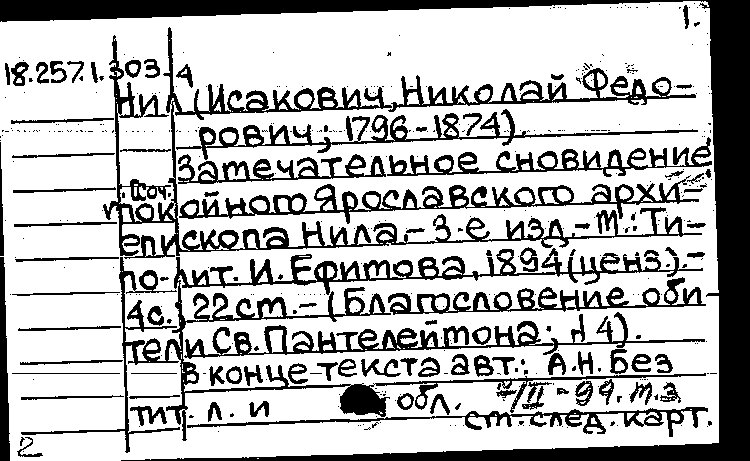 1.
18.257.1.303-4
Нил (Исакович, Николай Федо-
рович; 1796-1874).
Замечательное сновидение
: [Соч.]
покойного Ярославского архи-
епископа Нила.- 3-е изд.- М.: Ти-
по-лит. И. Ефимова, 1894 (ценз.).-
4с.; 22см.- (Благословение оби-
тели Св. Пантелеймона; № 4).
В конце текста авт.: А.Н. Без
тит. л. и обл.
см. след. карт.
2